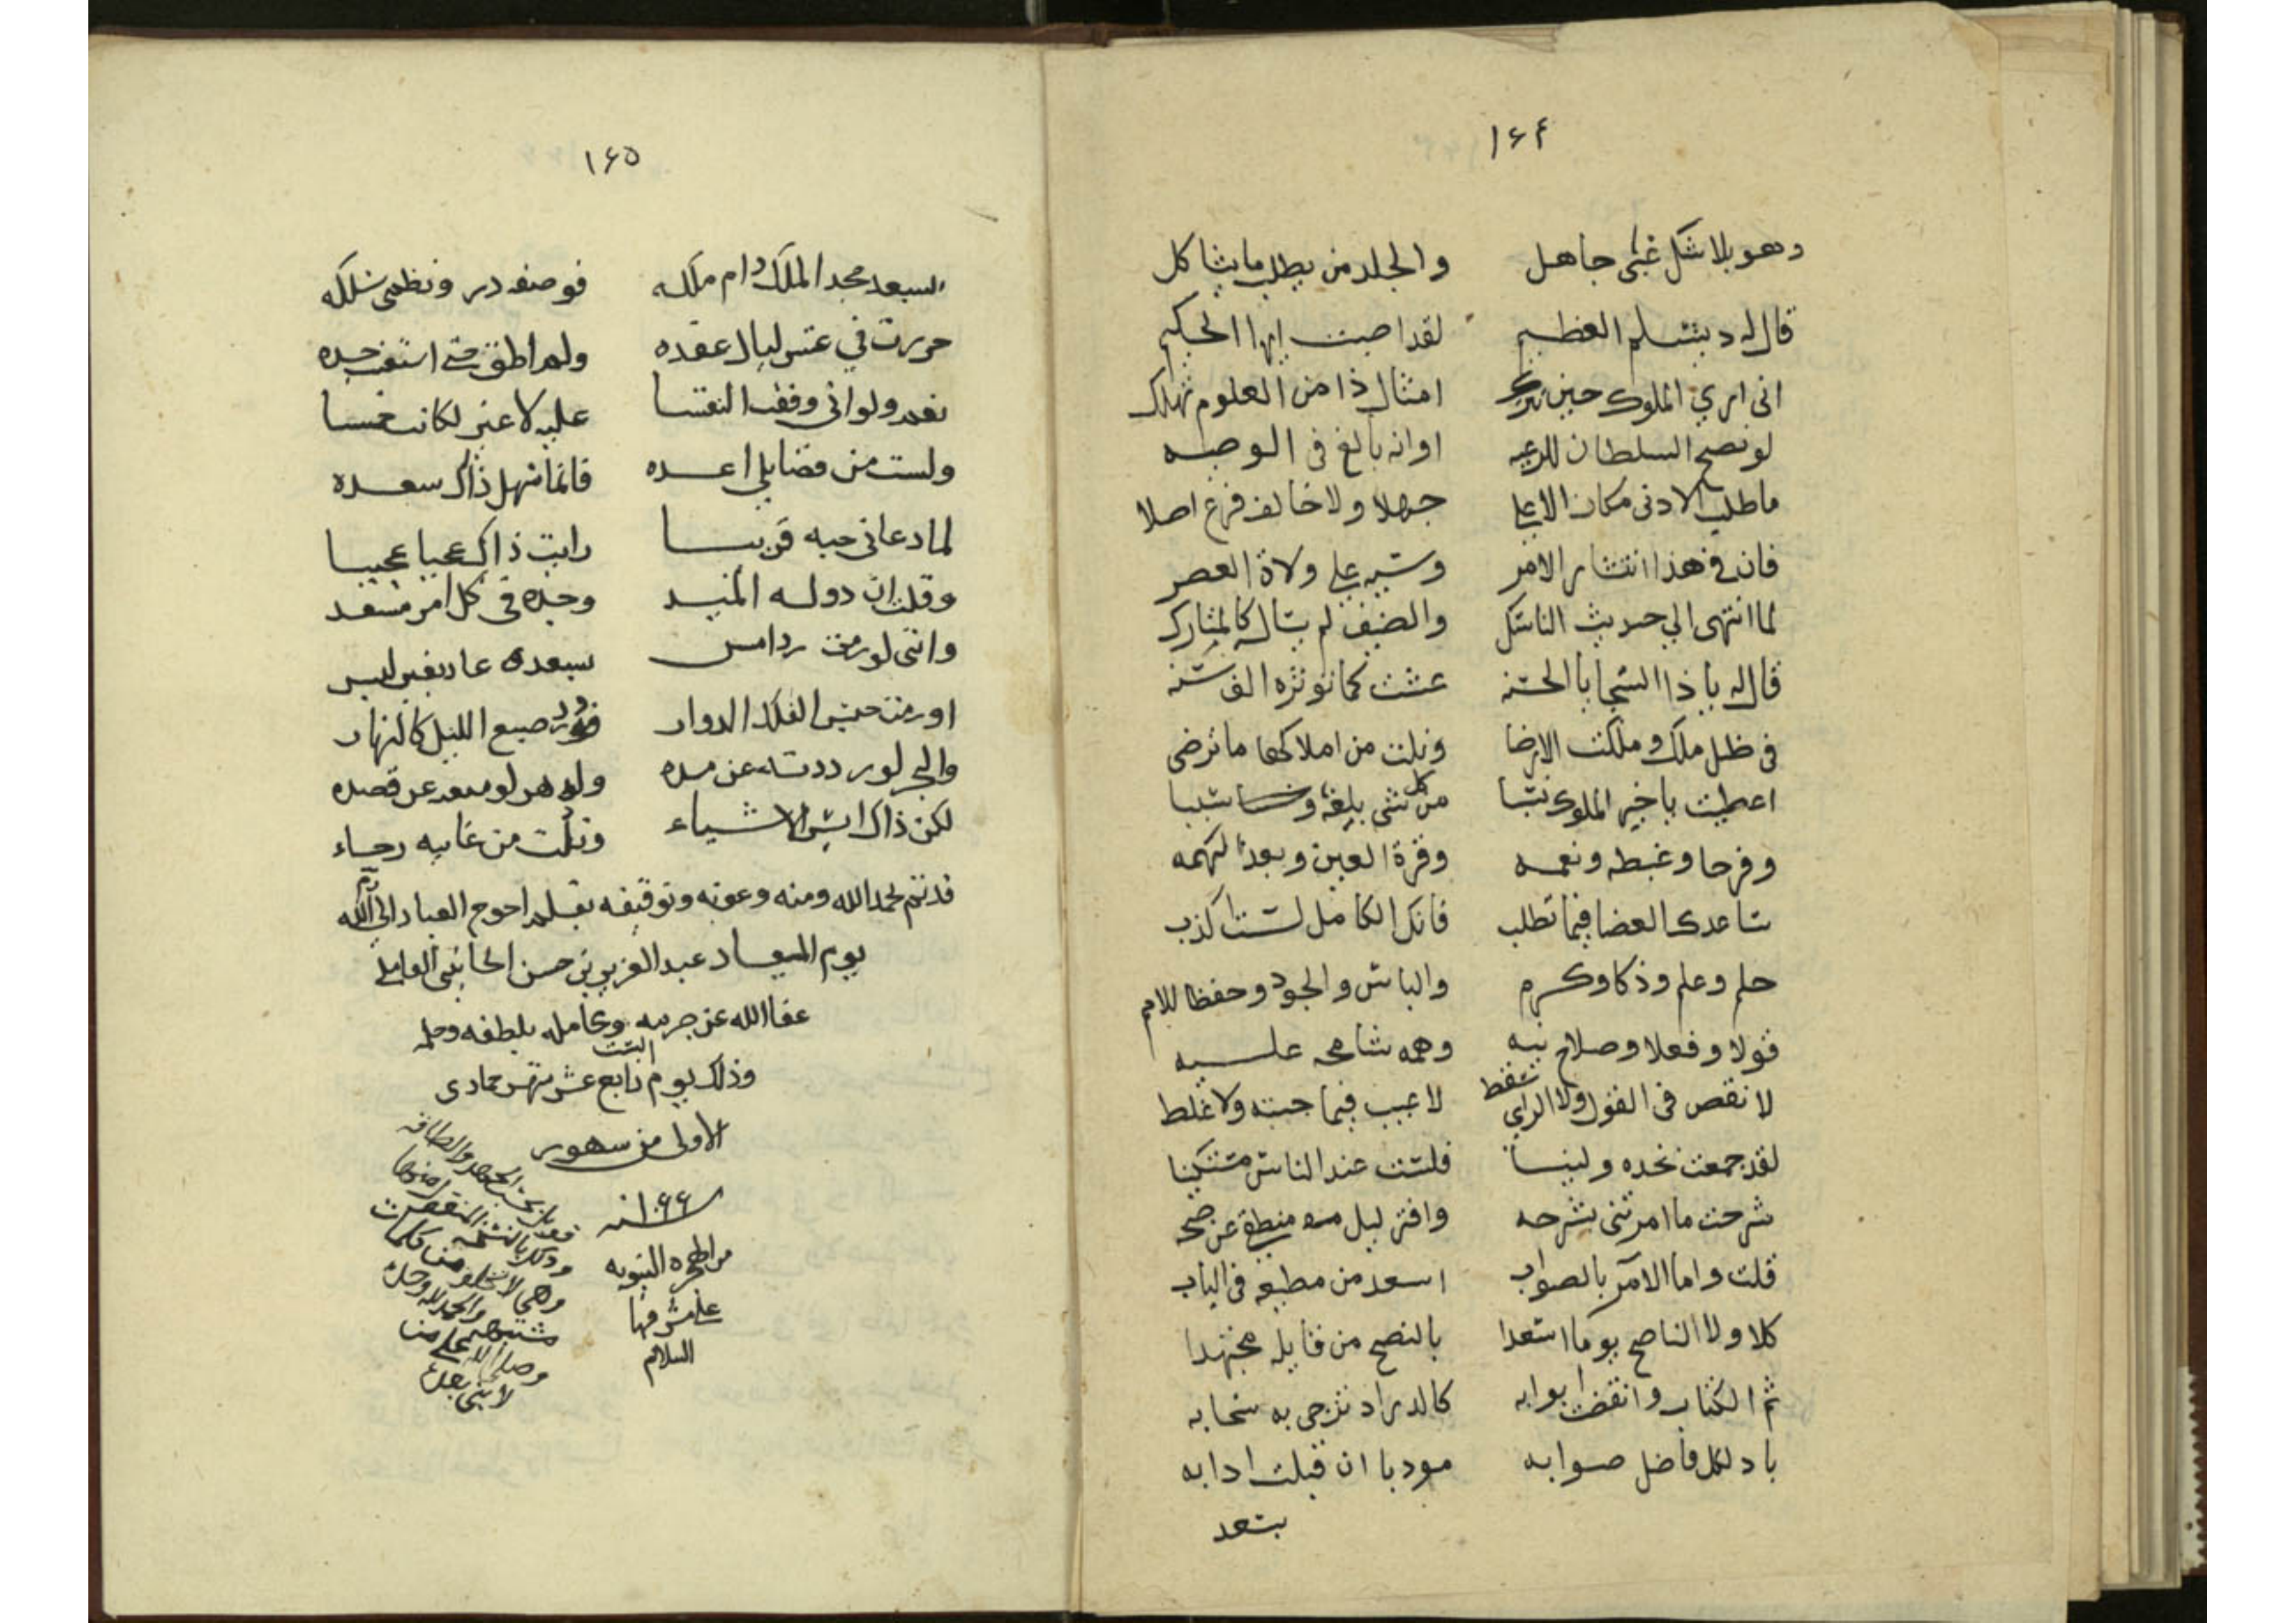 ١٦٤
وهو بلا شكل غبي جاهل والجلد من يطلب ما يشاكل
قال له دبشلم العظيم لقد اصبت ايها الحكيم
اني اري الملوك حين تترك امثال ذا من العلوم تهلك
لو نصح السلطان للرعيه او انه بالغ في الوصيه
ما طلب الادنى مكان الاعلي جهلا ولا خالف فرع اصلا
فان في هذا انتشار الامر وسبه علي ولاة العصر
لما انتهى الي حديث الناسك والضيف لم يسال كالمشارك
قال له يا ذا السجايا الحسنه عشت كما تؤثره الف سنه
في ظل ملك وملكت الارضا ونلت من املاكها ما ترضى
اعطيت يا خير الملوك من كل شي بلغة و سببا
وفرحا وغبطه ونعمه وقرة العين وبعد الهمه
ساعدك القضا فيما تطلب فانك الكامل لست اكذب
حلم وعلم وذكا وكرم والباس والجود وحفظ للامم
قولا وفعلا وصلاح نيه وهمه شامخه عليه
لا نقص في القول ولا الراي سقط لا عيب فيما جيته ولا غلط
لقد جمعت نجده ولينا فلست عند الناس مستكينا
شرحت ما امرتني بشرحه وافتر ليل منطق عن صبحه
قلت واما الآمر بالصواب اسعد من مطيعه في الباب
كلا ولا الناصح يوما اسعدا بالنصح من قابله مجتهدا
ثم الكتاب وانقضت ابوابه كالدر اد تزجي به سحابه
باد لكل فاضل صوابه مودبا ان قبلت ادابه
بسعد
١٦٥
السعد مجد الملك دام ملكه فوصفه در ونظمي سلكه
حررت في عشر ليال عقده ولم اطق حتى استنفدت جده
نعم ولو اني وفقت النفسا عليه لا عشر لكانت خمسا
ولست من فضايلي اعده فانما سهل ذاك سعده
لما دعاني حبه قريبا رايت ذاك عجبا عجيبا
وقلت ان دوله المنيد وجده في كل امر مسعد
وانني لو رمت رد امس بسعده عاد بغير لبس
او رمت حبس الفلك الدوار صبغ الليل كالنهار
والبحر لو رددته عن مده والدهر لو عن قصده
لكن ذاك ايسر الاشياء ونلت من غايه رجاء
قد تم بحمد الله ومنه وعونه وتوفيقه بقلم احوج العباد الي الله
يوم الميعاد عبد العزيز بن حسن الحانيني العاملي
عفا الله عن جرمه وعامله بلطفه وحلمه
وذلك يوم السبت رابع عشر شهر جمادى
الاولى من شهور
سنه ١٠٦٦
من الهجره النبويه
علي مشرفها
السلام
بحسب الجهد والطاقه
والحمد لله وحده
وصلى الله علي من
لا نبي بعده